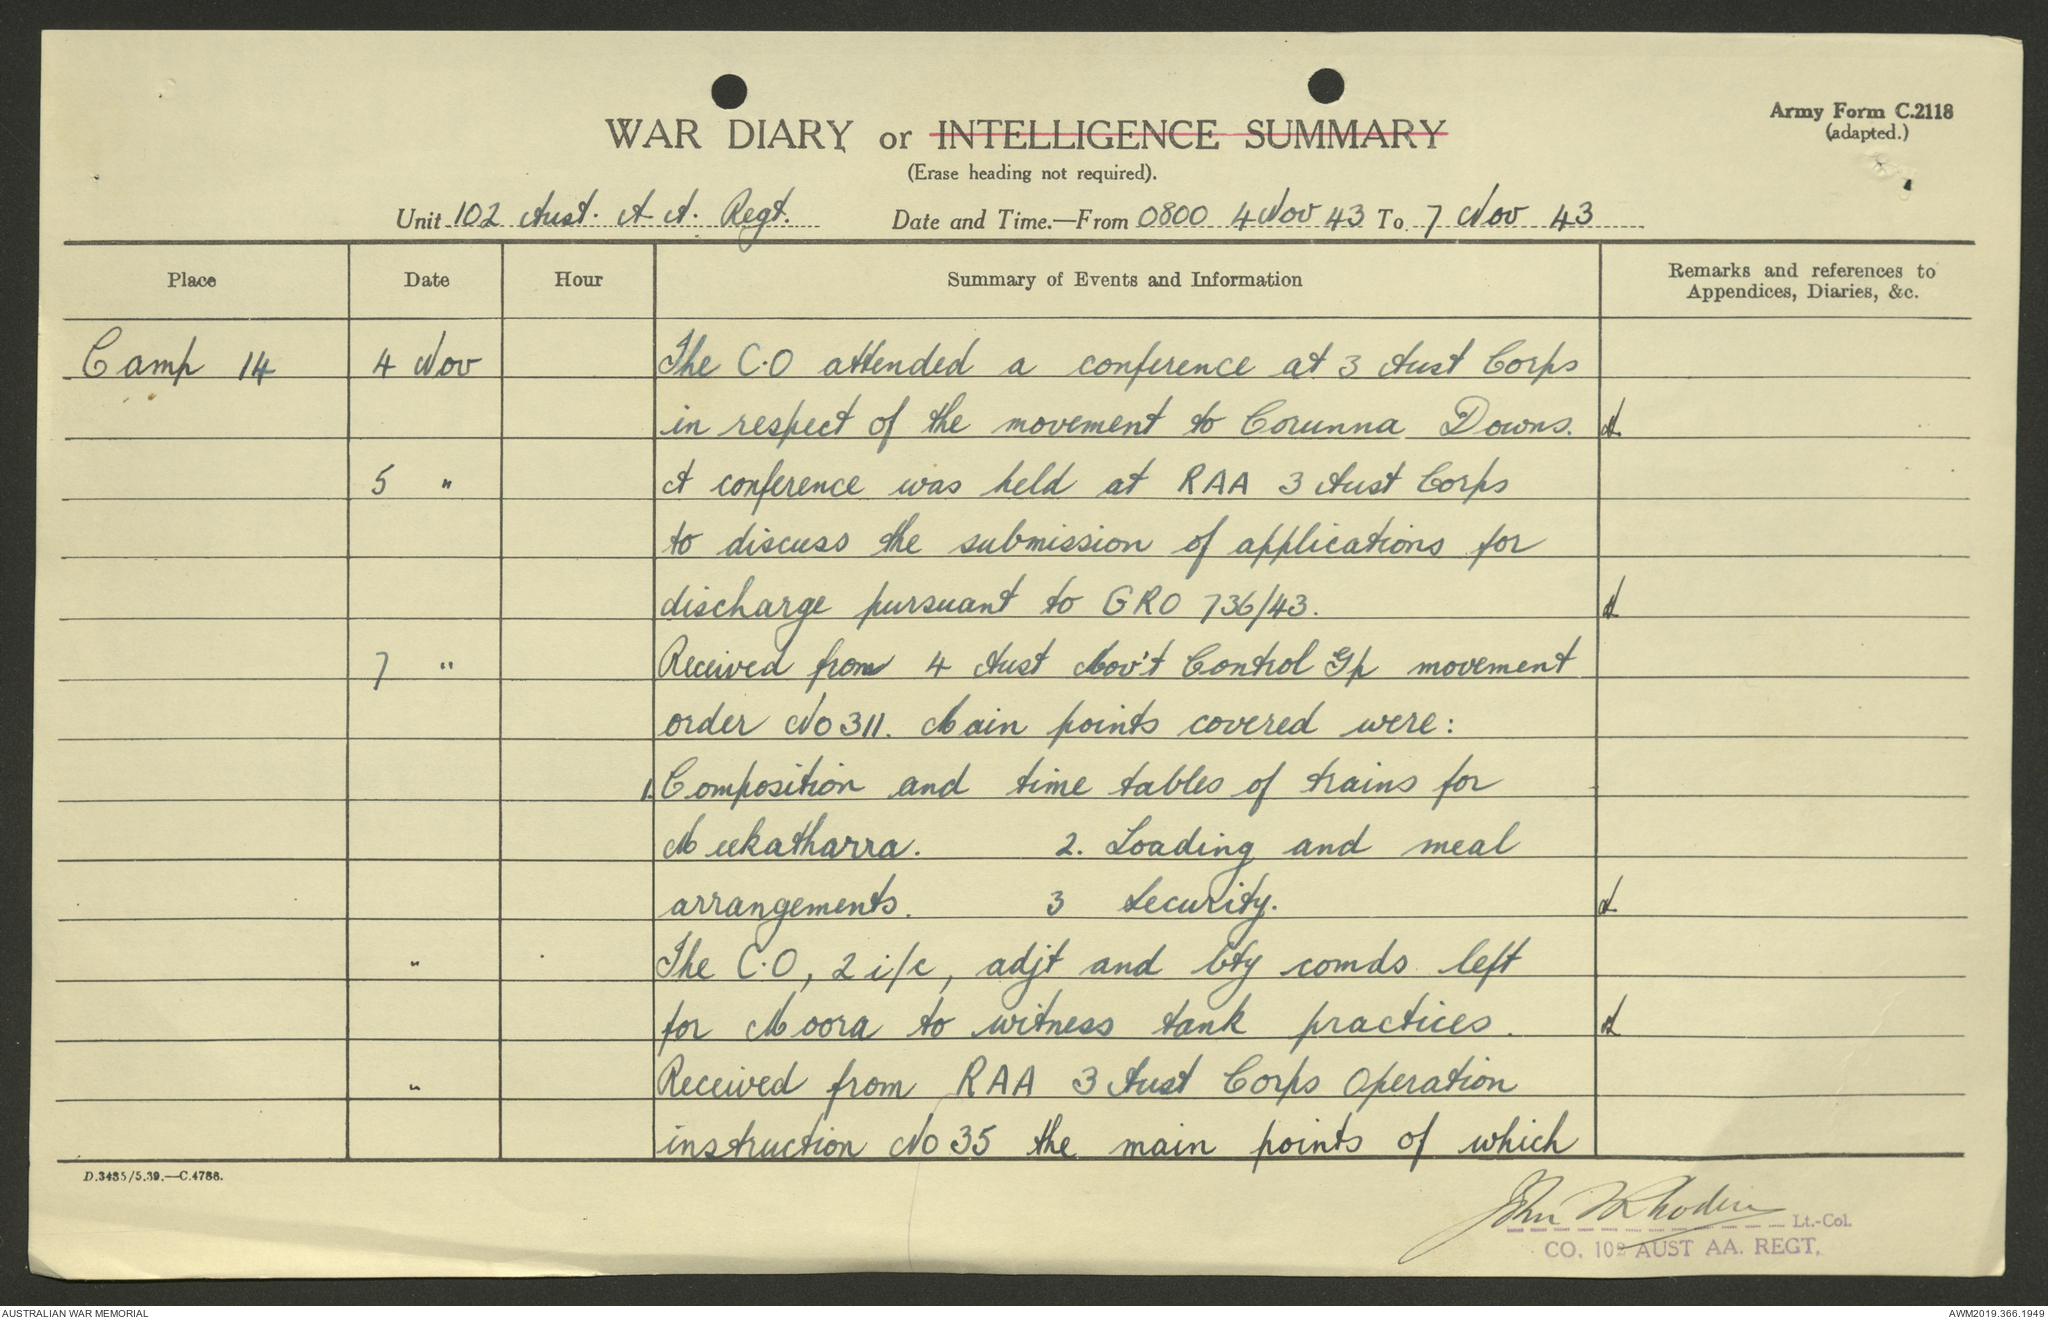 Army Form C.2118
(adapted.)
WAR DIARY or INTELLIGENCE SUMMARY
(Erase heading not required).
Unit 102 Aust. A A. Regt. Date and Time.—From 0800 4 Nov 43 To 7 Nov 43
Place Date Hour Summary of Events and Information Remarks and references to Appendices, Diaries, &c.
Camp 14 4 Nov The C.O attended a conference at 3 Aust Corps
in respect of the movement to Corunna Downs.
5 " A conference was held at RAA 3 Aust Corps
to discuss the submission of applications for
discharge pursuant to GRO 736/43.
7 " Received from 4 Aust Mov't Control Gp movement
order No 311. Main points covered were:
1. Composition and time tables of trains for
Meekatharra. 2. Loading and meal
arrangements. 3 Security.
" The C.O, 2 i/c, adjt and bty comds left
for Moora to witness tank practices.
" Received from RAA 3 Aust Corps Operation
instruction No 35 the main points of which
D.3435/5.39.—C.4786.
John Lt.-Col.
CO. 102 AUST AA. REGT.
AUSTRALIAN WAR MEMORIAL
AWM2019.366.1949